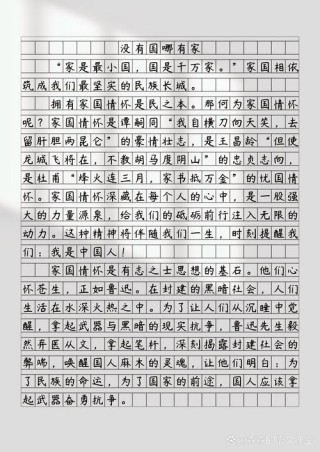 没有国哪有家
“家是最小国，国是千万家。”家国相依，
筑成我们最坚实的民族长城。
拥有家国情怀是民之本。那何为家国情怀
呢？家国情怀是谭嗣同“我自横刀向天笑，去
留肝胆两昆仑”的豪情壮志，是王昌龄“但使
龙城飞将在，不教胡马度阴山”的忠贞志向，
是杜甫“烽火连三月，家书抵万金”的忧国情
怀。家国情怀深藏在每个人的心中，是一股强
大的力量源泉，给我们的砥砺前行注入无限的
动力。这种精神将伴随我们一生，时刻提醒我
们：我是中国人！
家国情怀是有志之士思想的基石。他们心
怀苍生，正如鲁迅。在封建的黑暗社会，人们
生活在水深火热之中。为了让人们从沉睡中觉
醒，拿起武器与黑暗的现实抗争，鲁迅先生毅
然弃医从文，拿起笔杆，深刻揭露封建社会的
弊端，唤醒国人麻木的灵魂，让他们明白：为
了民族的命运，为了国家的前途，国人应该拿
起武器奋勇抗争。